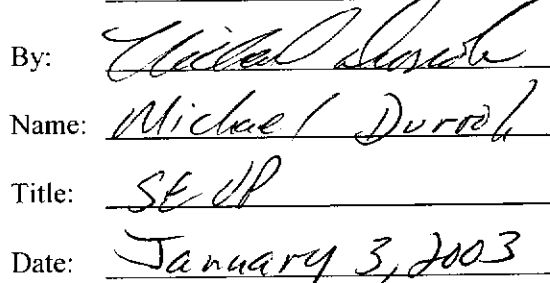 By:
Name: Michael Durrah
Title: SEVP
Date: January 3, 2003